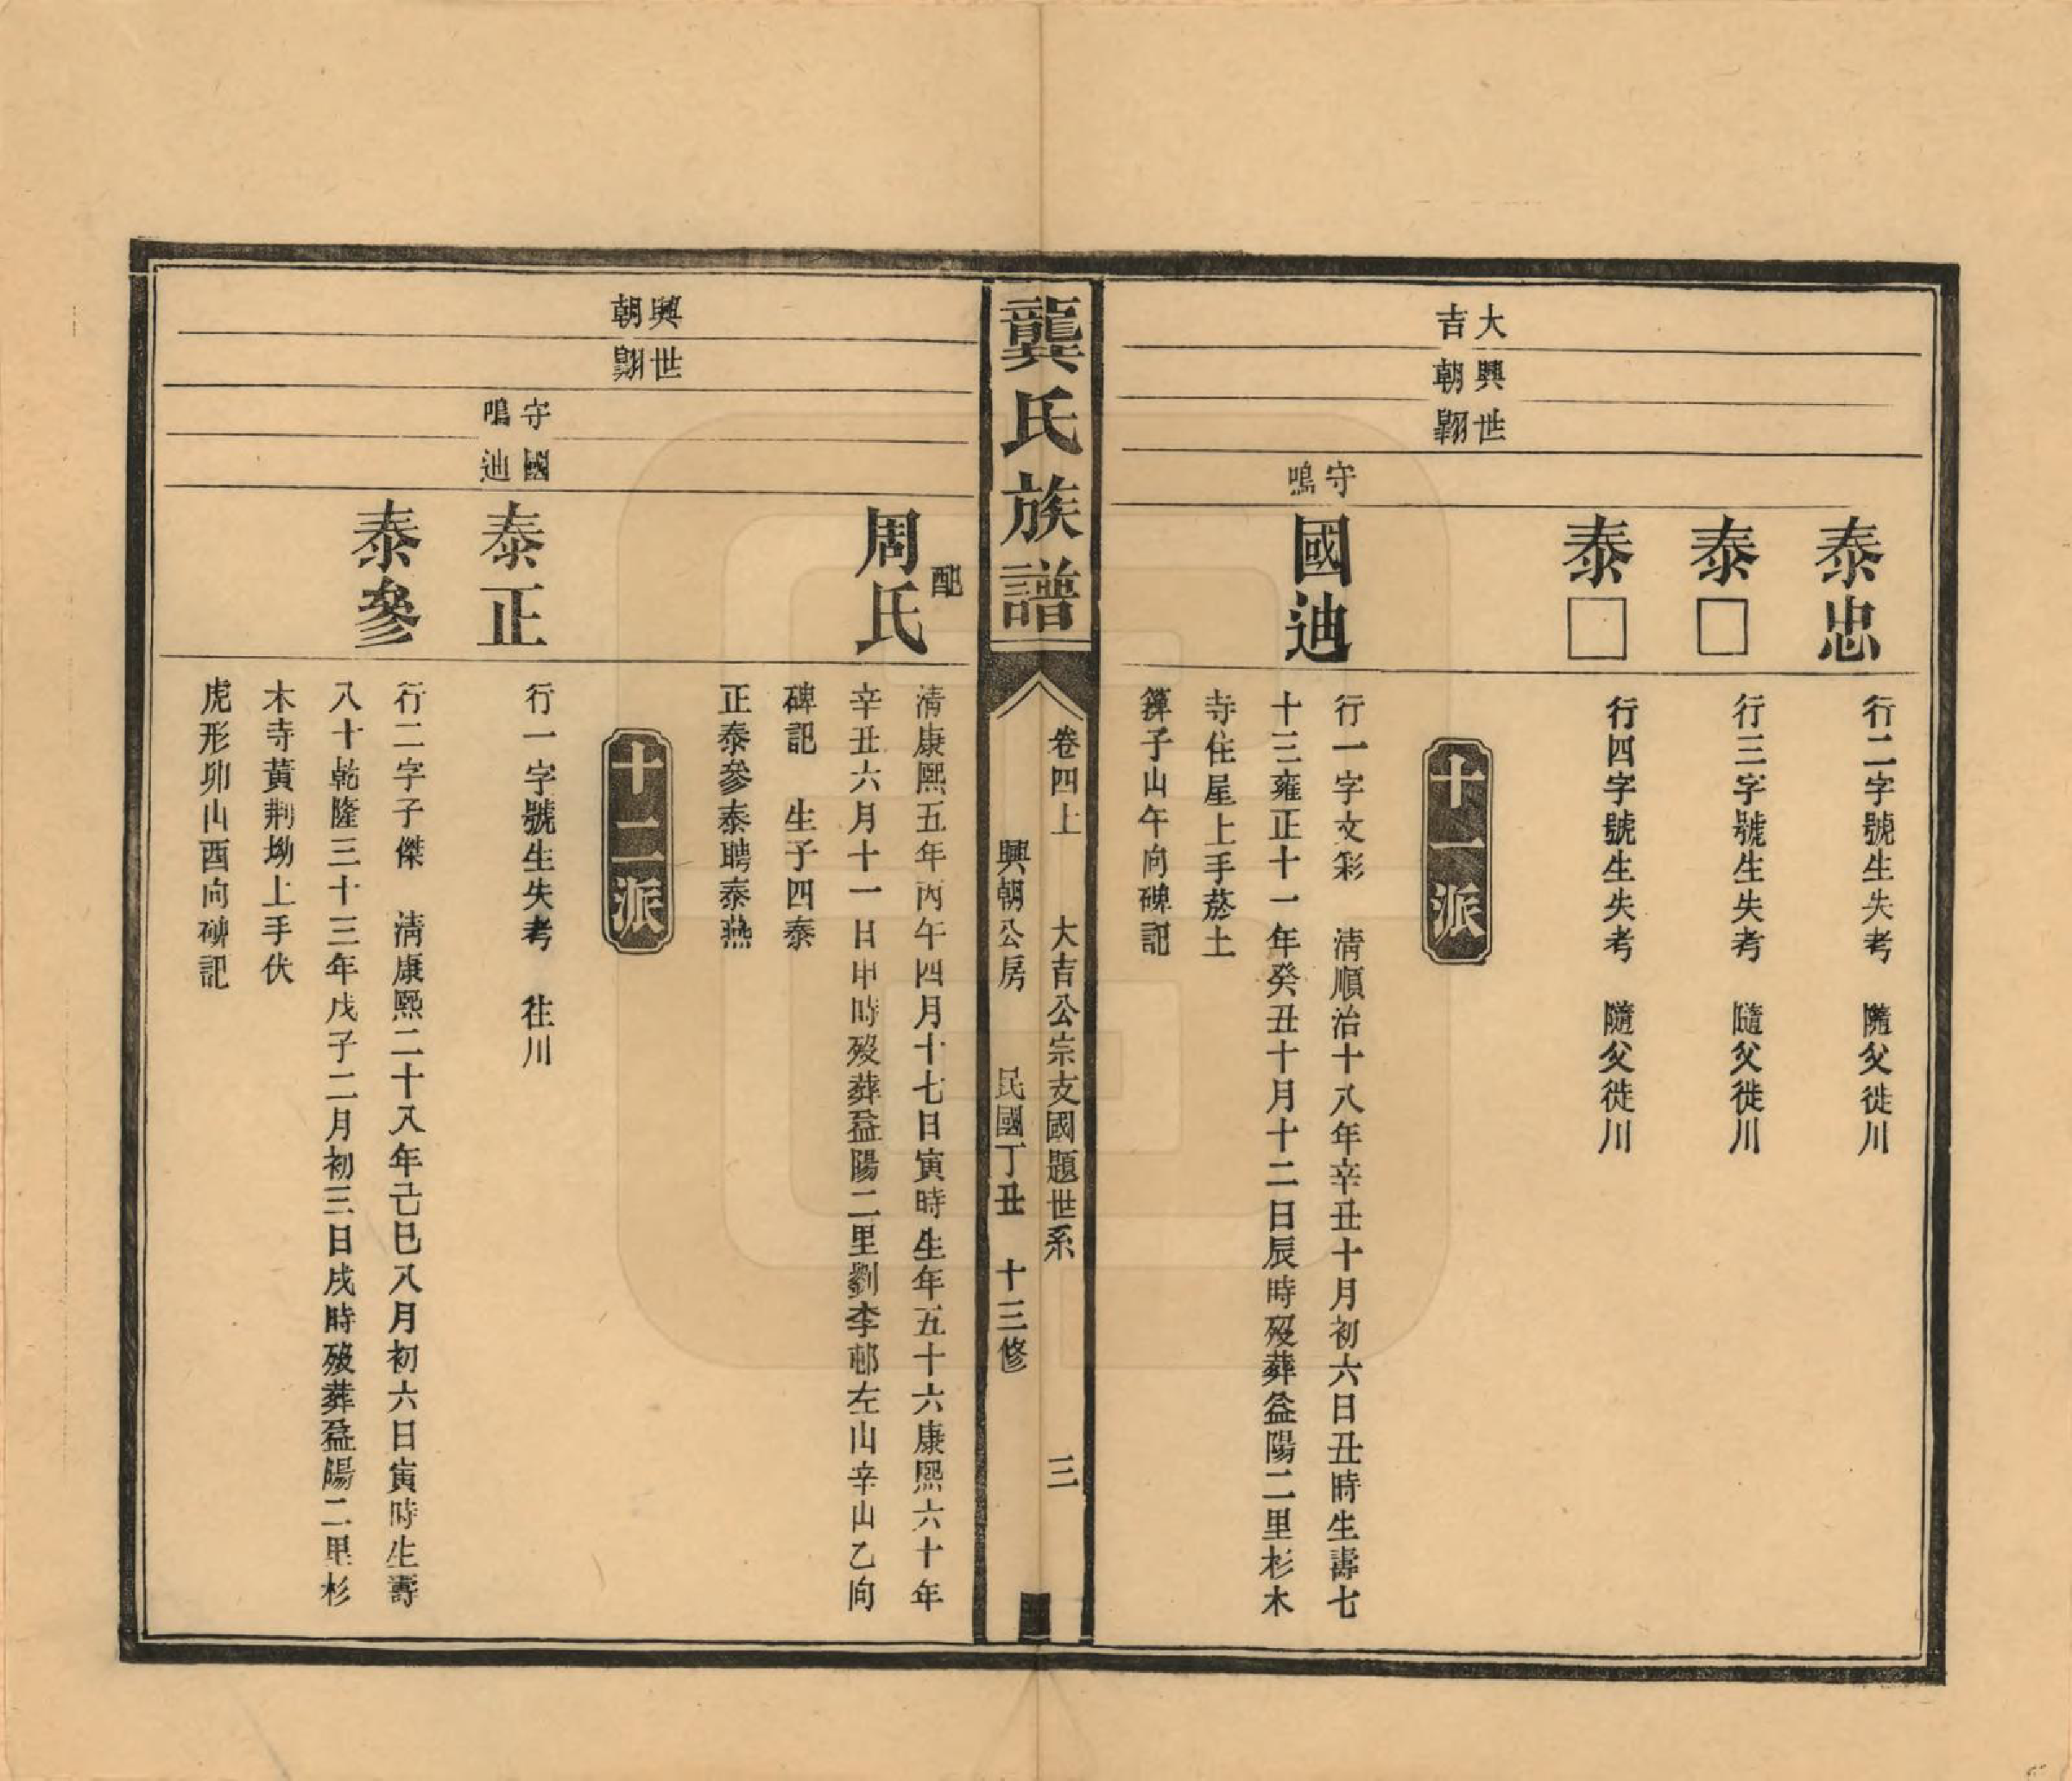 大吉
興朝
世翾
泰忠
行二字號生失考　隨父徙川
泰□
行三字號生失考　隨父徙川
泰□
行四字號生失考　隨父徙川
十一派
守鳴
國迪
行一字文彩　清順治十八年辛丑十月初六日丑時生壽七
十三雍正十一年癸丑十月十二日辰時歿葬益陽二里杉木
寺住屋上手菸土
子山午向碑記
龔氏族譜
卷四上　大吉公宗支國題世系　三
興朝公房　民國丁丑　十三修
興朝
世翾
配
周氏
清康熙五年丙午四月十七日寅時生年五十六康熙六十年
辛丑六月十一日申時歿葬益陽二里劉李邨左山辛山乙向
碑記　生子四泰
正泰參泰聘泰燕
十二派
守鳴
國迪
泰正
行一字號生失考　往川
泰參
行二字子傑　清康熙二十八年己巳八月初六日寅時生壽
八十乾隆三十三年戊子二月初三日戌時歿葬益陽二里杉
木寺黃荆坳上手伏
虎形卯山酉向碑記